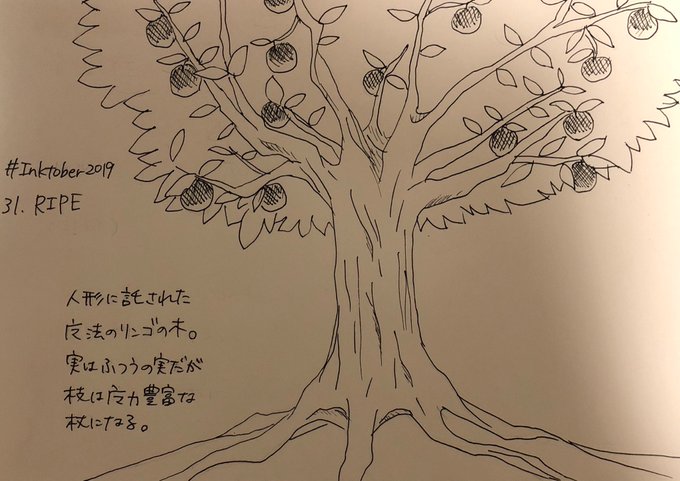 #Inktober2019
31. RIPE
人形に託された
魔法のリンゴの木。
実はふつうの実だが
枝は魔力豊富な
杖になる。